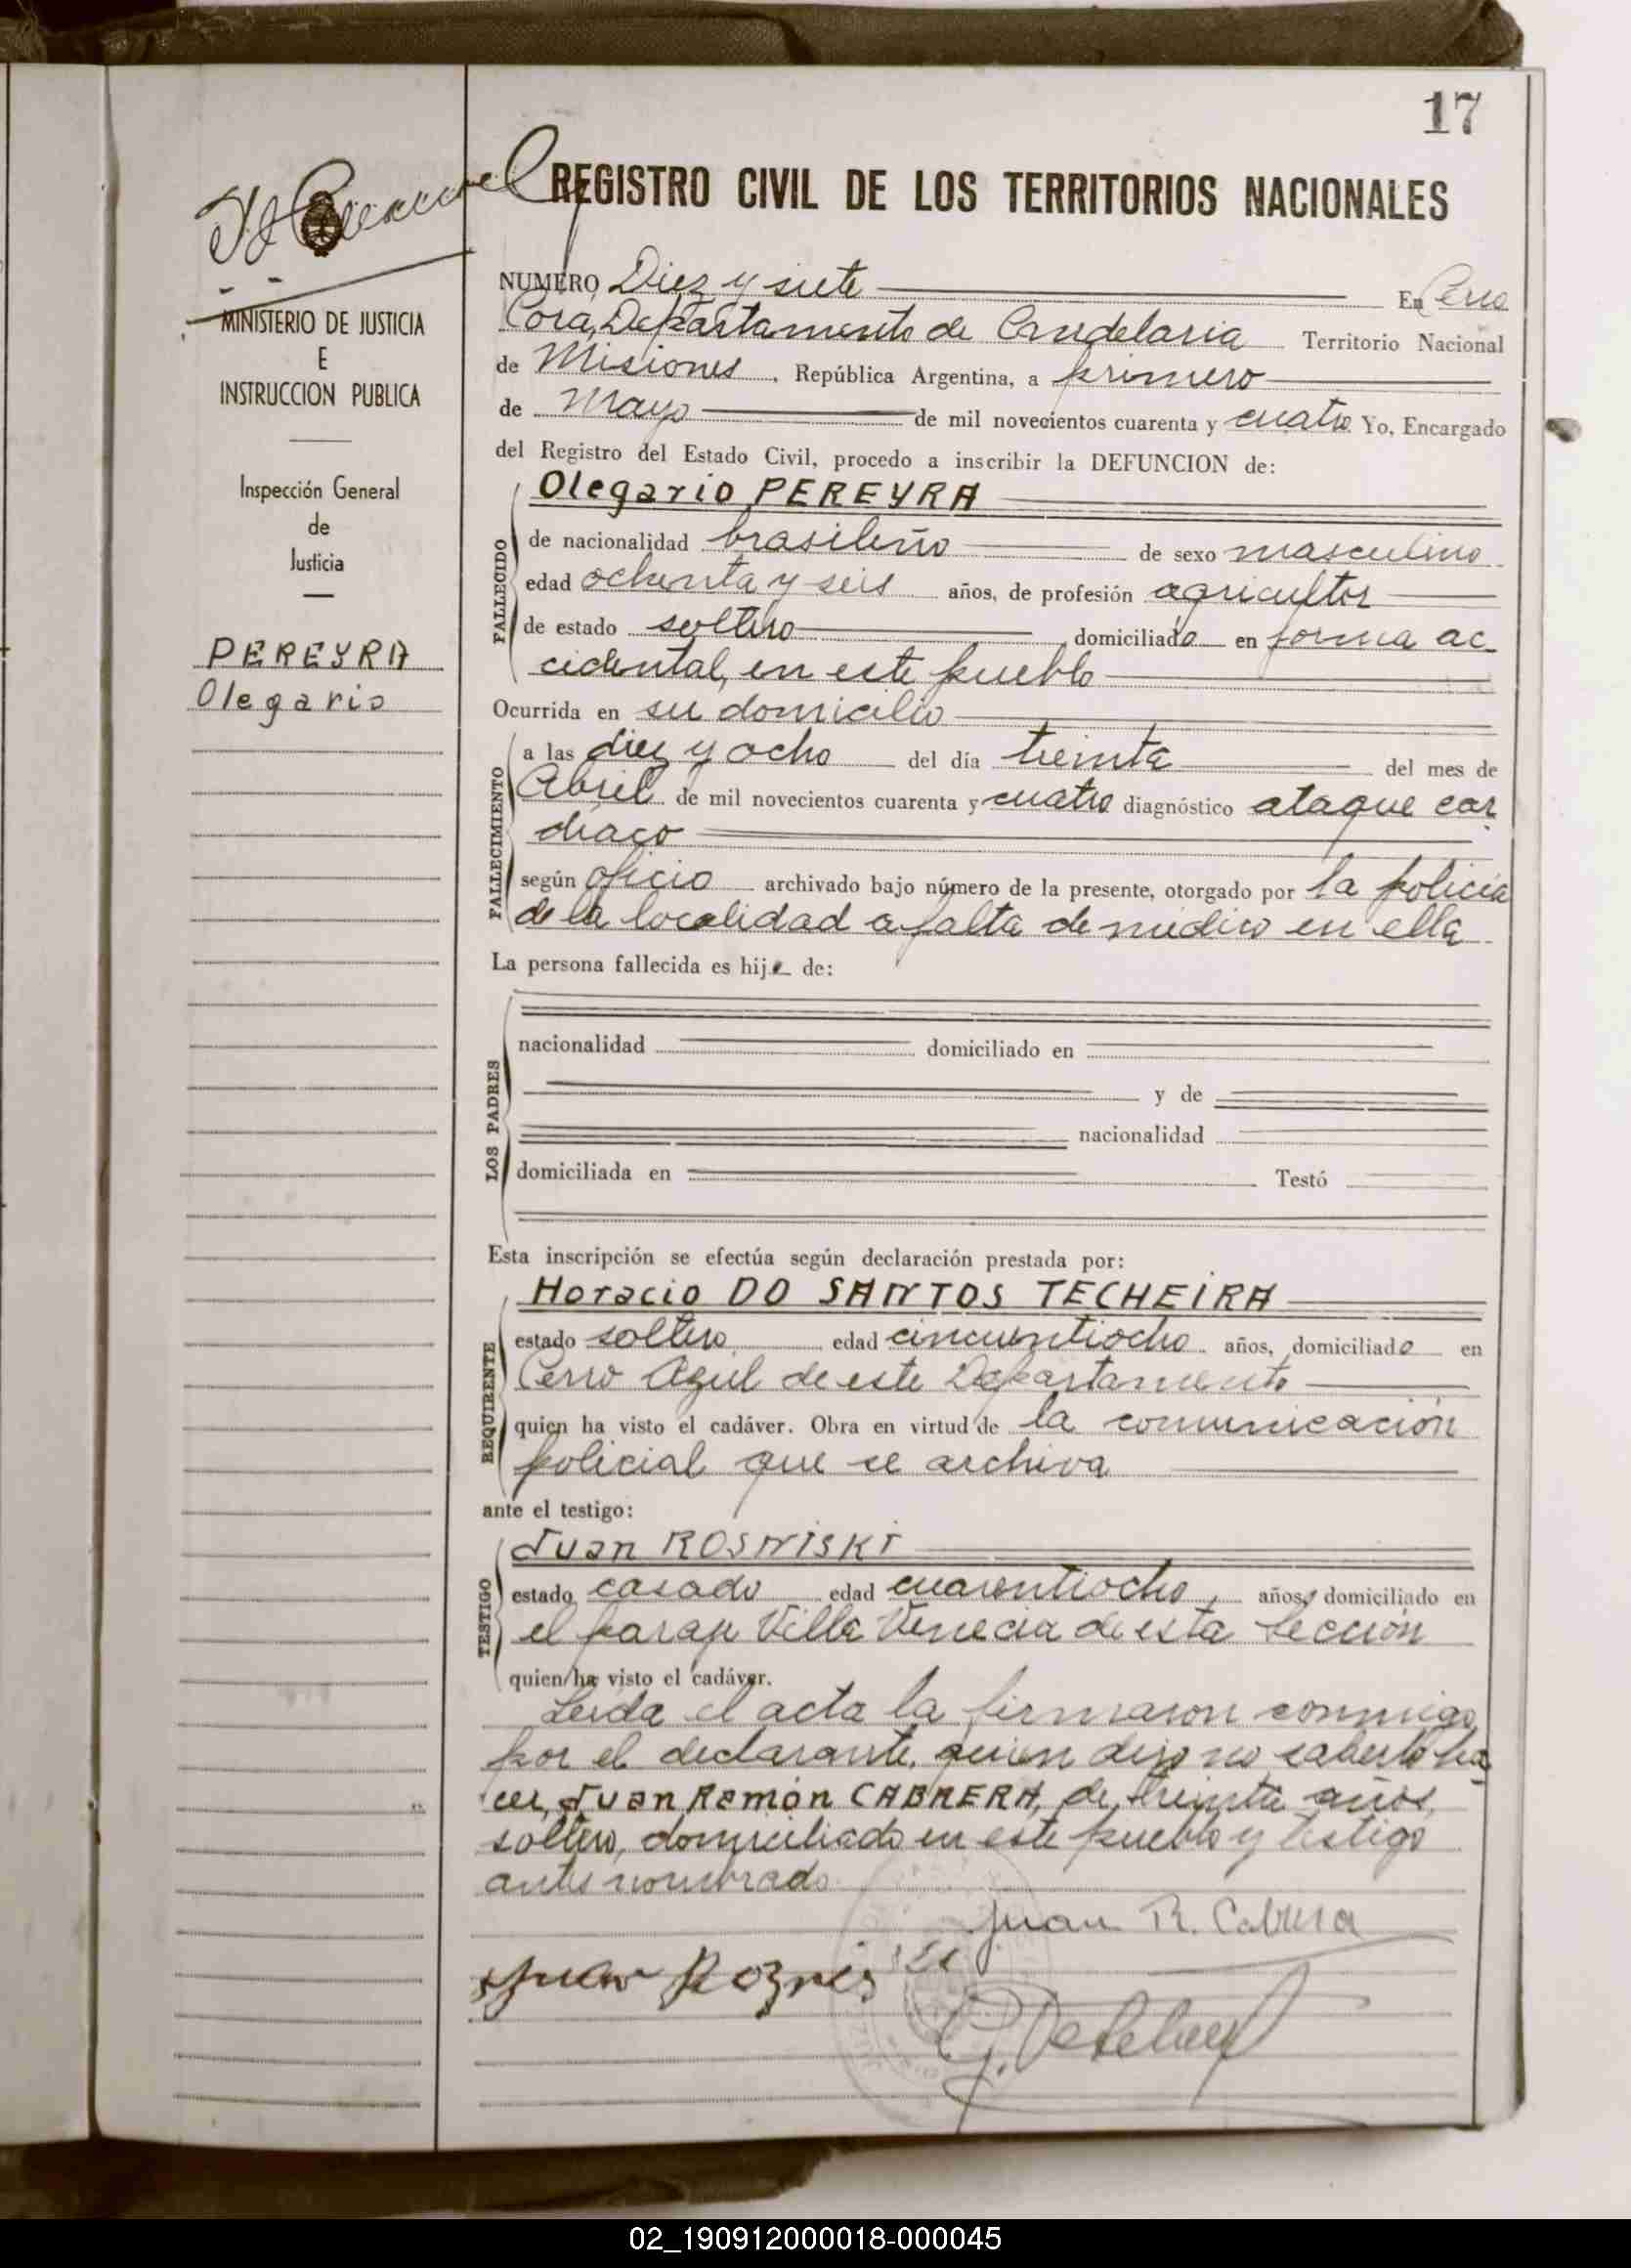 17
REGISTRO CIVIL DE LOS TERRITORIOS NACIONALES
MINISTERIO DE JUSTICIA
E
INSTRUCCION PUBLICA
Inspección General
de
Justicia
PEREYRA
Olegario
NUMERO Diez y siete En Cerro
Corá, Departamento de Candelaria Territorio Nacional
de Misiones, República Argentina, a primero
de Mayo de mil novecientos cuarenta y cuatro Yo, Encargado
del Registro del Estado Civil, procedo a inscribir la DEFUNCION de:
Olegario PEREYRA
FALLECIDO
de nacionalidad brasileño de sexo masculino
edad ochenta y seis años, de profesión agricultor
de estado soltero domiciliado en forma ac
cidental, en este pueblo
Ocurrida en su domicilio
FALLECIMIENTO
a las diez y ocho del día treinta del mes de
Abril de mil novecientos cuarenta y cuatro diagnóstico ataque car
diaco
según oficio archivado bajo número de la presente, otorgado por la policía
de la localidad a falta de médico en ella
La persona fallecida es hij de:
LOS PADRES
nacionalidad domiciliado en
y de
nacionalidad
domiciliada en Testó
Esta inscripción se efectúa según declaración prestada por:
Horacio DO SANTOS TECHEIRA
REQUIRENTE
estado soltero edad cincuentiocho años, domiciliado en
Cerro Azul de este Departamento
quien ha visto el cadáver. Obra en virtud de la comunicación
policial que se archiva
ante el testigo:
Juan ROSNISKI
TESTIGO
estado casado edad cuarentiocho, años, domiciliado en
el paraje Villa Venecia de esta Sección
quien ha visto el cadáver.
Leida el acta la firmaron conmigo,
por el declarante, quien dijo no saberlo ha
cer, Juan Ramón CABRERA, de treinta años,
soltero, domiciliado en este pueblo y testigo
antes nombrado
Juan R. Cabrera
Juan
02_190912000018-000045